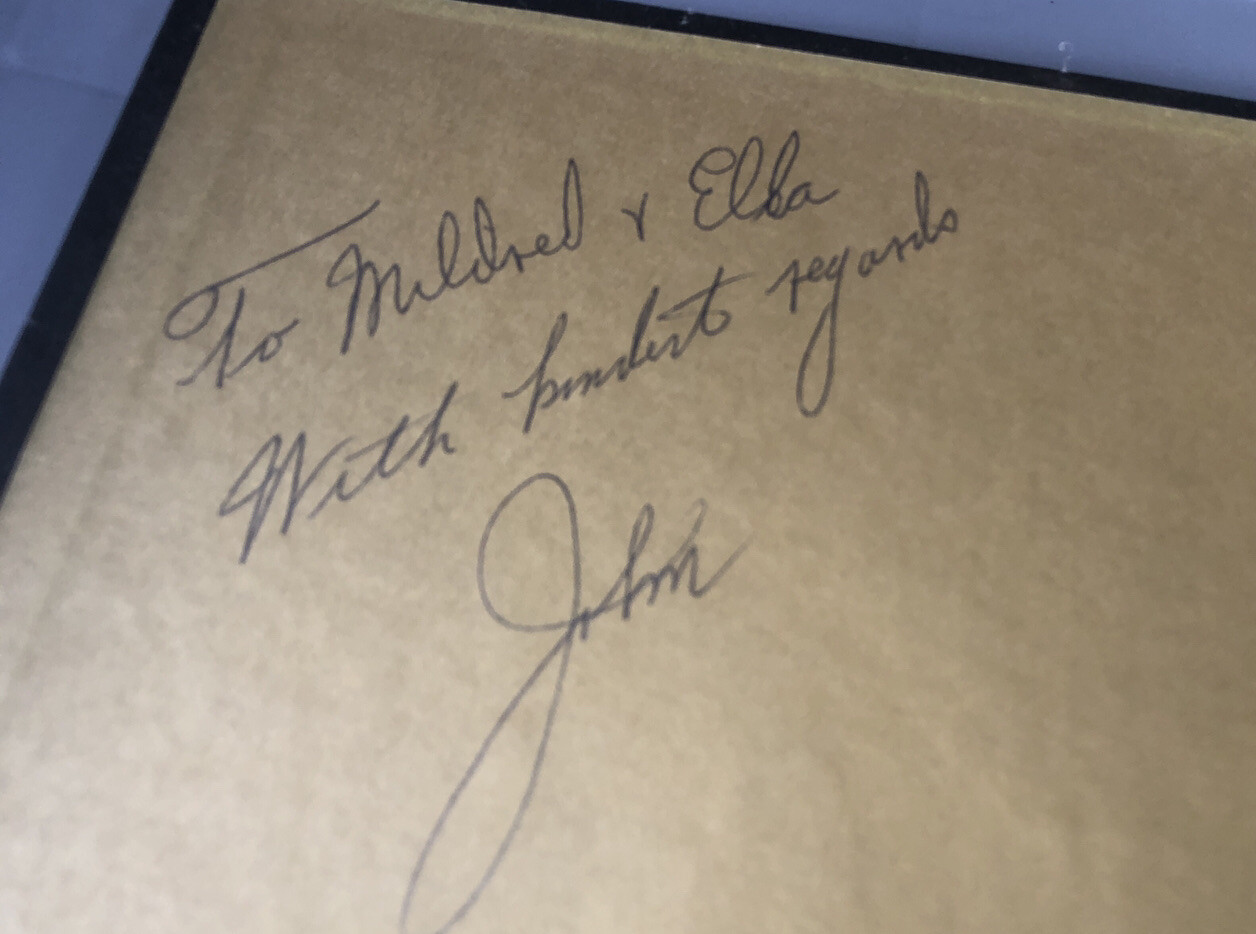 To Mildred & Elba
With kindest regards
John